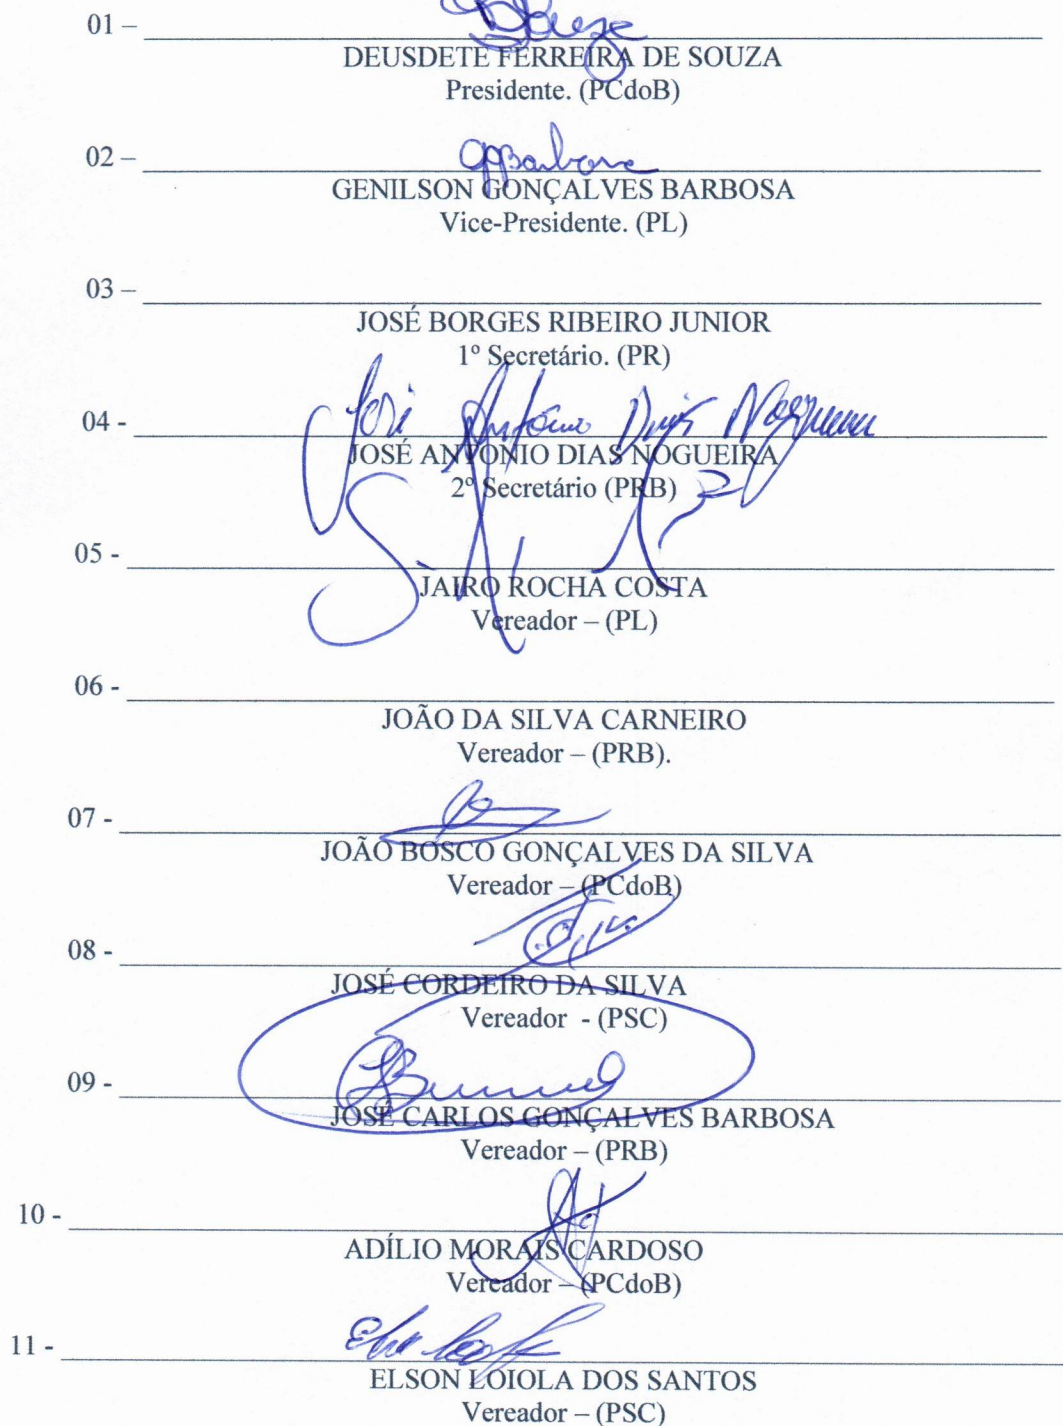 01 –
DEUSDETE FERREIRA DE SOUZA
Presidente. (PCdoB)
02 –
GENILSON GONÇALVES BARBOSA
Vice-Presidente. (PL)
03 –
JOSÉ BORGES RIBEIRO JUNIOR
1º Secretário. (PR)
José Antônio Dias Nogueira
04 -
JOSÉ ANTONIO DIAS NOGUEIRA
2º Secretário (PRB)
05 -
JAIRO ROCHA COSTA
Vereador – (PL)
06 -
JOÃO DA SILVA CARNEIRO
Vereador – (PRB).
07 -
JOÃO BOSCO GONÇALVES DA SILVA
Vereador – (PCdoB)
08 -
JOSÉ CORDEIRO DA SILVA
Vereador - (PSC)
09 -
JOSÉ CARLOS GONÇALVES BARBOSA
Vereador – (PRB)
10 -
ADÍLIO MORAIS CARDOSO
Vereador – (PCdoB)
11 -
ELSON LOIOLA DOS SANTOS
Vereador – (PSC)